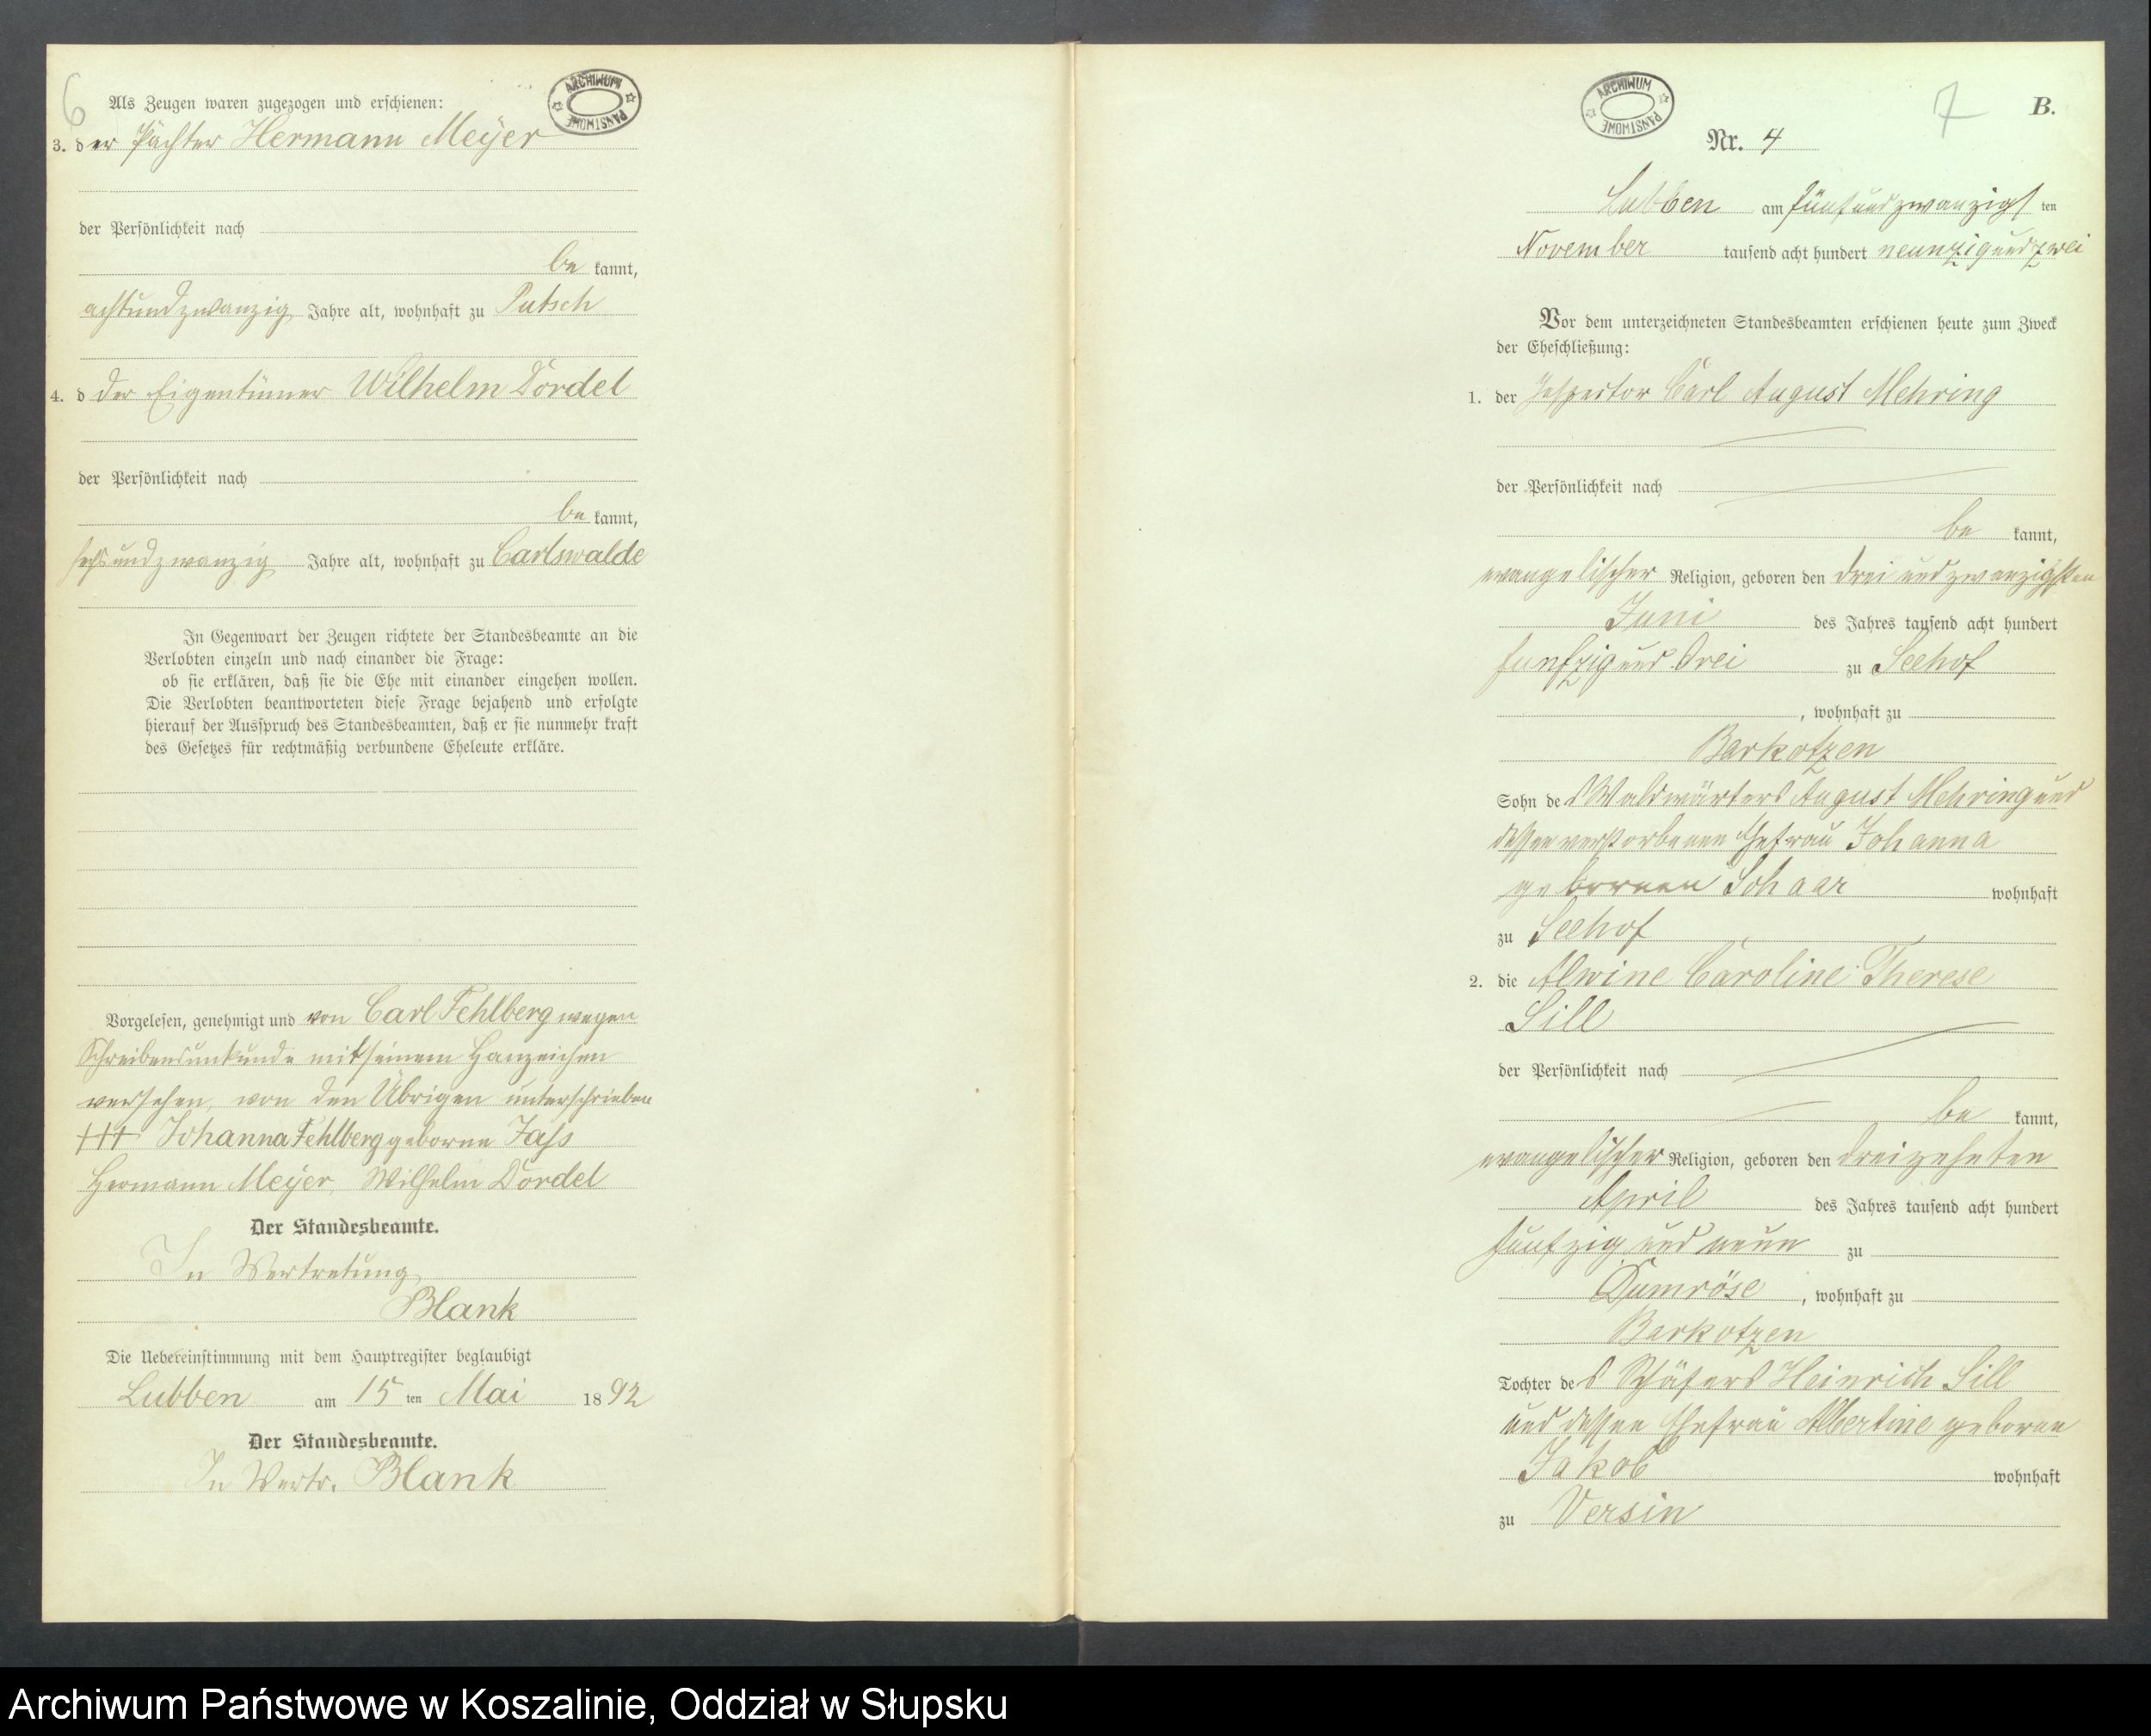 6
ARCHIWUM PAŃSTWOWE
Als Zeugen waren zugezogen und erschienen:
3. der Pächter Hermann Meÿer
der Persönlichkeit nach
be kannt,
achtundzwanzig Jahre alt, wohnhaft zu Putsch
4. d der Eigentümer Wilhelm Dordel
der Persönlichkeit nach
be kannt,
sechsundzwanzig Jahre alt, wohnhaft zu Carlswalde
In Gegenwart der Zeugen richtete der Standesbeamte an die
Verlobten einzeln und nach einander die Frage:
ob sie erklären, daß sie die Ehe mit einander eingehen wollen.
Die Verlobten beantworteten diese Frage bejahend und erfolgte
hierauf der Ausspruch des Standesbeamten, daß er sie nunmehr kraft
des Gesetzes für rechtmäßig verbundene Eheleute erkläre.
Vorgelesen, genehmigt und von Carl Fehlberg wegen
Schreibensunkunde mit seinem Hanzeichen
versehen, von den Übrigen unterschrieben
+++ Johanna Fehlberg geborne Jass
Hermann Meÿer, Wilhelm Dordel
Der Standesbeamte.
In Vertretung,
Blank
Die Uebereinstimmung mit dem Hauptregister beglaubigt
Lubben am 15 ten Mai 1892
Der Standesbeamte.
In Vertr. Blank
ARCHIWUM PAŃSTWOWE
7
B.
Nr. 4
Lubben am fünfundzwanzigs ten
November tausend acht hundert neunzig und zwei
Vor dem unterzeichneten Standesbeamten erschienen heute zum Zweck
der Eheschließung:
1. der Inspector Carl August Mehring
der Persönlichkeit nach
be kannt,
evangelischer Religion, geboren den drei und zwanzigsten
Juni des Jahres tausend acht hundert
funfzig und drei zu Seehof
, wohnhaft zu
Barkotzen
Sohn des Waldwärters August Mehring und
dessen verstorbenen Ehefrau Johanna
gebornen Schaar wohnhaft
zu Seehof
2. die Alwine Caroline Therese
Sill
der Persönlichkeit nach
be kannt,
evangelischer Religion, geboren den dreizehnten
April des Jahres tausend acht hundert
funfzig und neun zu
Dumröse, wohnhaft zu
Barkotzen
Tochter des Schäfers Heinrich Sill
und dessen Ehefrau Albertine geborne
Jakob wohnhaft
zu Versin
Archiwum Państwowe w Koszalinie, Oddział w Słupsku